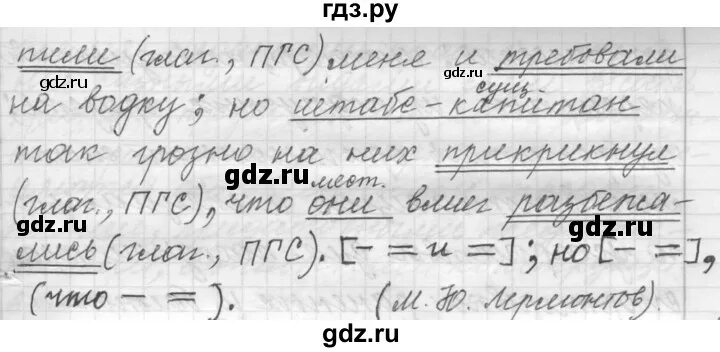 гдз.ру
пили (глаг., ПГС) меня и требовали
на водку; но штабс-капитан
сущ.
так грозно на них прикрикнул
(глаг., ПГС), что они вмиг разбежа-
мест.
лись (глаг., ПГС). [- = и =]; но [- =],
(что - =). (М. Ю. Лермонтов).
gdz.ru
gdz.ru
gdz.ru
gdz.ru
gdz.ru
gdz.ru
gdz.ru